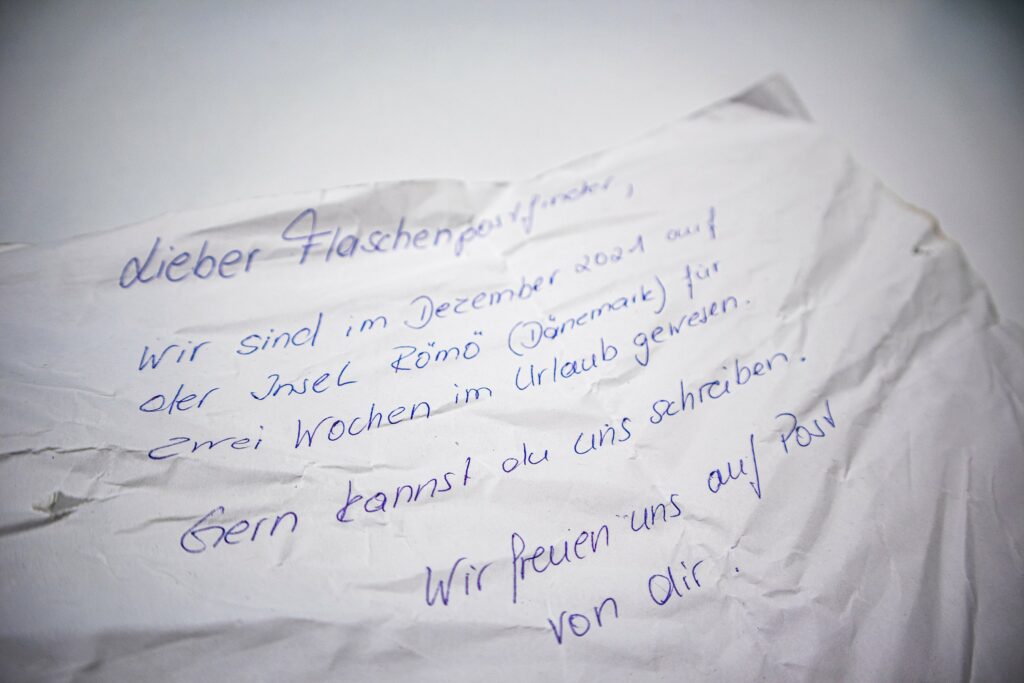 Lieber Flaschenpostfinder,
Wir sind im Dezember 2021 auf
der Insel Römö (Dänemark) für
zwei Wochen im Urlaub gewesen.
Gern kannst du uns schreiben.
Wir freuen uns auf Post
von dir.